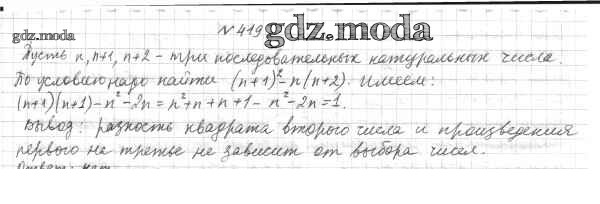 № 419
gdz.moda
gdz.moda
Пусть n, n+1, n+2 - три последовательных натуральных числа.
По условию надо найти (n+1)² - n(n+2). Имеем:
(n+1)(n+1) - n² - 2n = n² + n + n + 1 - n² - 2n = 1.
Вывод: разность квадрата второго числа и произведения
первого на третье не зависит от выбора чисел.
Ответ: нет